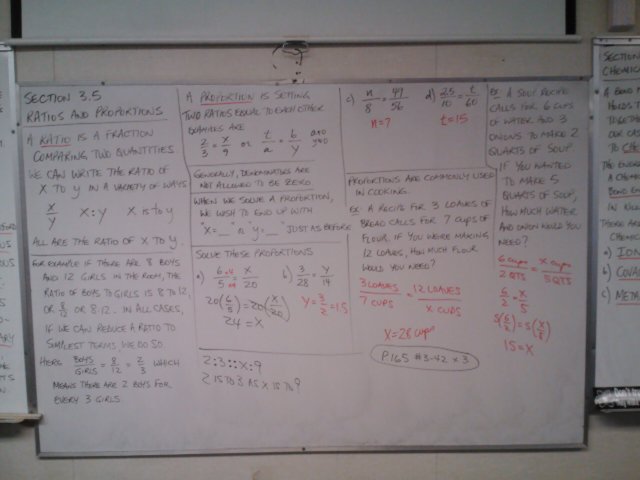 SECTION 3.5
RATIOS AND PROPORTIONS
A RATIO IS A FRACTION
COMPARING TWO QUANTITIES.
WE CAN WRITE THE RATIO OF
X TO Y IN A VARIETY OF WAYS
X/Y X:Y X IS TO Y
ALL ARE THE RATIO OF X TO Y.
FOR EXAMPLE IF THERE ARE 8 BOYS
AND 12 GIRLS IN THE ROOM, THE
RATIO OF BOYS TO GIRLS IS 8 TO 12,
OR 8/12 OR 8:12. IN ALL CASES,
IF WE CAN REDUCE A RATIO TO
SIMPLEST TERMS, WE DO SO.
HERE BOYS/GIRLS = 8/12 = 2/3 WHICH
MEANS THERE ARE 2 BOYS FOR
EVERY 3 GIRLS.
A PROPORTION IS SETTING
TWO RATIOS EQUAL TO EACH OTHER
EXAMPLES ARE
2/3 = X/9 OR t/a = b/y a≠0 y≠0
GENERALLY, DENOMINATORS ARE
NOT ALLOWED TO BE ZERO
WHEN WE SOLVE A PROPORTION,
WE WISH TO END UP WITH
"X=__" OR "Y=__" JUST AS BEFORE
SOLVE THESE PROPORTIONS
a) 6/5 = X/20
20(6/5) = 20(X/20)
24 = X
b) 3/28 = Y/14
Y = 3/2 = 1.5
2:3::X:9
2 IS TO 3 AS X IS TO 9
c) n/8 = 49/56
n=7
d) 25/10 = t/60
t=15
PROPORTIONS ARE COMMONLY USED
IN COOKING.
EX: A RECIPE FOR 3 LOAVES OF
BREAD CALLS FOR 7 CUPS OF
FLOUR. IF YOU WERE MAKING
12 LOAVES, HOW MUCH FLOUR
WOULD YOU NEED?
3 LOAVES/7 CUPS = 12 LOAVES/X CUPS
X=28 CUPS
P.165 #3-42 x3
EX: A SOUP RECIPE
CALLS FOR 6 CUPS
OF WATER AND 3
ONIONS TO MAKE 2
QUARTS OF SOUP.
IF YOU WANTED
TO MAKE 5
QUARTS OF SOUP,
HOW MUCH WATER
AND ONION WOULD YOU
NEED?
6 CUPS/2 QTS = X CUPS/5 QTS
6/2 = X/5
5(6/2) = 5(X/5)
15=X
SECTION
CHEMICAL
A BOND
HOLDS
TOGETHER
OUR
TO
THE
A CHEMI
BOND
IN
THERE ARE
CHEMIC
a) ION
b) COVA
c) META